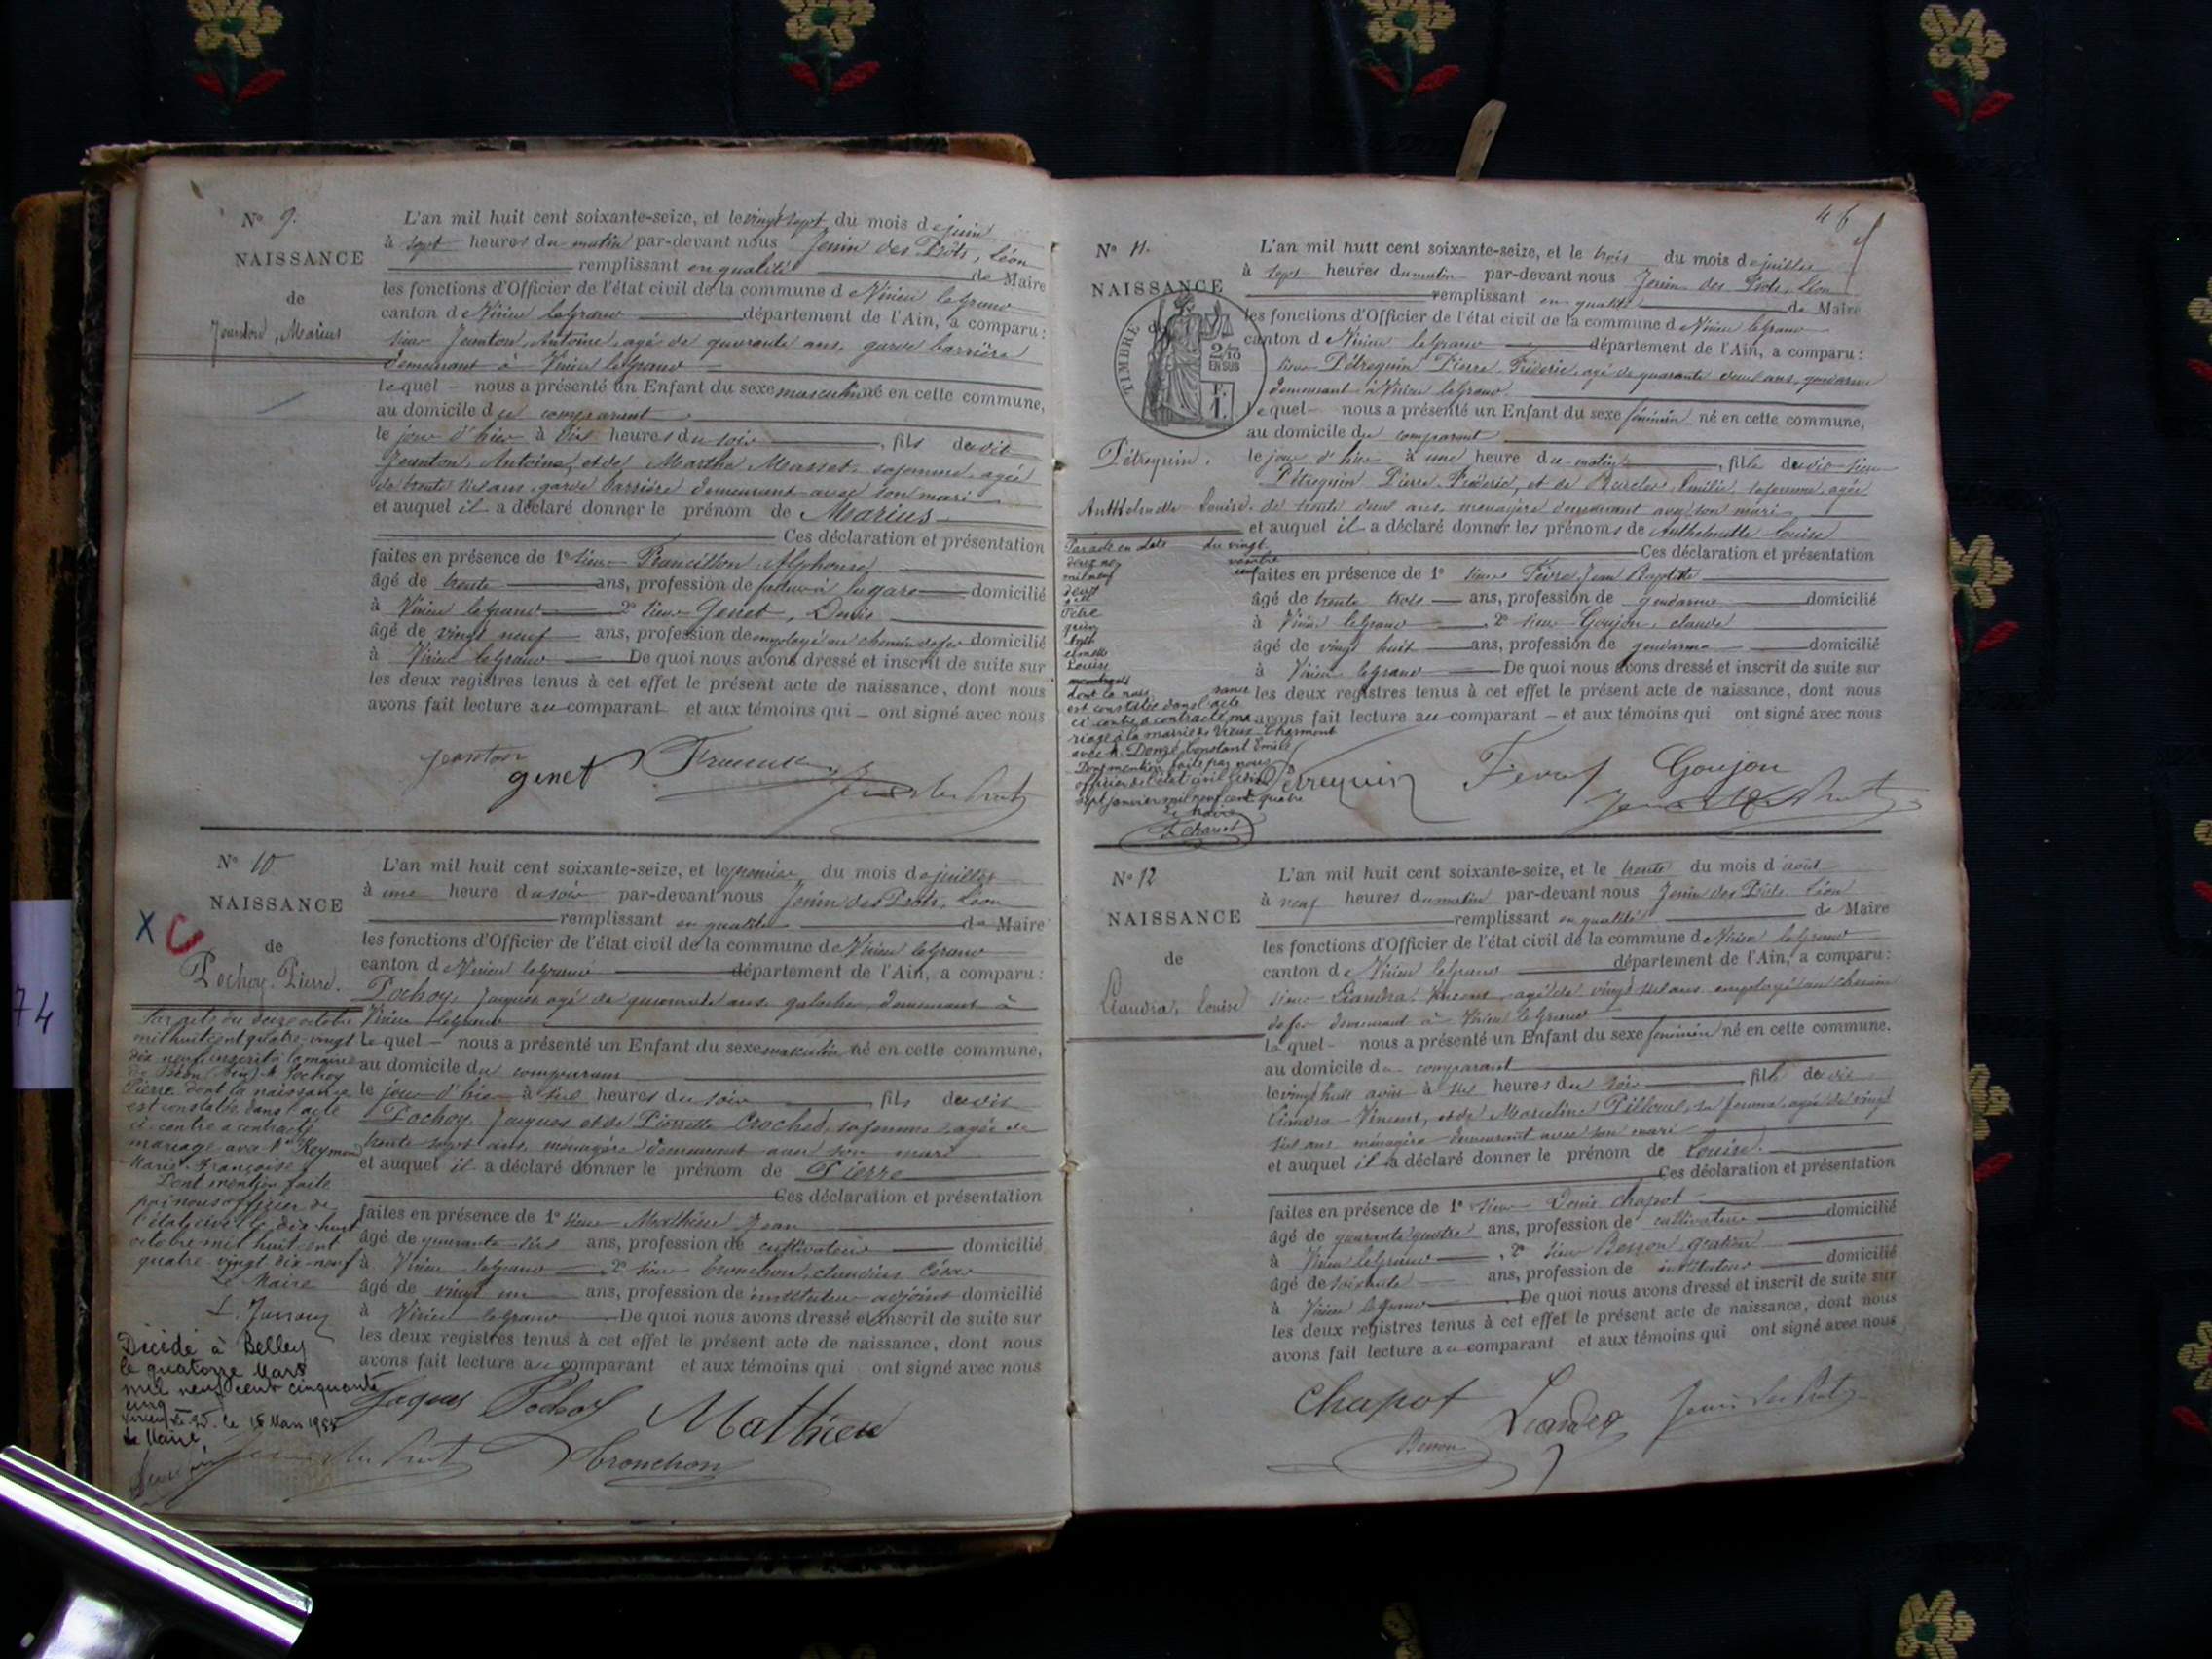 N° 9.
NAISSANCE
de
Jeanton, Marius
L'an mil huit cent soixante-seize, et le vingt sept du mois de juin
à sept heures du matin par-devant nous Jenin des Prots, Léon
remplissant en qualité de Maire
les fonctions d'Officier de l'état civil de la commune de Virieu le grand
canton de Virieu le grand département de l'Ain, a comparu :
sieur Jeanton, Antoine, agé de quarante ans, garde barrière
demeurant à Virieu le grand
lequel nous a présenté un Enfant du sexe masculin né en cette commune,
au domicile du comparant
le jour d'hier à heures du soir , fils du dit
Jeanton, Antoine, et de Marthe Masset, sa femme, agée
de trente ans, garde barrière demeurant avec son mari
et auquel il a déclaré donner le prénom de Marius
Ces déclaration et présentation
faites en présence de 1° sieur Francillon, Alphonse
âgé de trente ans, profession de facteur à la gare domicilié
à Virieu le grand 2° sieur Genet, Denis
âgé de vingt neuf ans, profession de employé au chemin de fer domicilié
à Virieu le grand De quoi nous avons dressé et inscrit de suite sur
les deux registres tenus à cet effet le présent acte de naissance, dont nous
avons fait lecture au comparant et aux témoins qui ont signé avec nous
jeanton
genet
N° 10
NAISSANCE
de
Pochoy, Pierre.
X C
Par acte du seize octobre
mil huit cent quatre-vingt
dix neuf inscrit à la mairie
de Béon (Ain) Mr Pochoy
Pierre dont la naissance
est constatée dans l'acte
ci-contre a contracté
mariage avec Mlle Reymond
Marie Françoise
Dont mention faite
par nous officier de
l'état civil le dix-huit
octobre mil huit cent
quatre-vingt dix-neuf
Le Maire
Décédé à Belley
le quatorze Mars
mil neuf cent cinquante
cinq
Virieu le Gd. le 16 Mars 1955
Le Maire,
L'an mil huit cent soixante-seize, et le premier du mois de juillet
à une heure du soir par-devant nous Jenin des Prots, Léon
remplissant en qualité de Maire
les fonctions d'Officier de l'état civil de la commune de Virieu le grand
canton de Virieu le grand département de l'Ain, a comparu :
Pochoy, Jacques agé de quarante ans, galocher, demeurant à
Virieu le grand
lequel nous a présenté un Enfant du sexe masculin né en cette commune,
au domicile du comparant
le jour d'hier à six heures du soir , fils du dit
Pochoy, Jacques et de Pierrette Crochet, sa femme, agée de
trente sept ans, ménagère demeurant avec son mari
et auquel il a déclaré donner le prénom de Pierre
Ces déclaration et présentation
faites en présence de 1° sieur Mathieu Jean
âgé de quarante six ans, profession de cultivateur domicilié
à Virieu le grand 2° sieur Tronchon, claudius César
âgé de vingt un ans, profession de instituteur adjoint domicilié
à Virieu le grand De quoi nous avons dressé et inscrit de suite sur
les deux registres tenus à cet effet le présent acte de naissance, dont nous
avons fait lecture au comparant et aux témoins qui ont signé avec nous
Jaques Mathieu
Tronchon
74
46
N° 11.
NAISSANCE
de
TIMBRE
2/10
EN SUS
F.
1.
Pétrequin,
Anthelmette Louise.
L'an mil huit cent soixante-seize, et le trois du mois de juillet
à sept heures du matin par-devant nous Jenin des Prots, Léon
remplissant en qualité de Maire
les fonctions d'Officier de l'état civil de la commune de Virieu le grand
canton de Virieu le grand département de l'Ain, a comparu :
sieur Pétrequin Pierre, Fréderic, agé de quarante deux ans, gendarme
demeurant à Virieu le grand
lequel nous a présenté un Enfant du sexe féminin né en cette commune,
au domicile du comparant
le jour d'hier à une heure du matin , fille du dit sieur
Pétrequin Pierre, Fréderic, et de Emilie, sa femme, agée
de trente deux ans, ménagère demeurant avec son mari
et auquel il a déclaré donner les prénoms de Anthelmette Louise
Ces déclaration et présentation
faites en présence de 1° sieur Jean Baptiste
âgé de trente trois ans, profession de gendarme domicilié
à Virieu le grand 2° sieur Goujon, claude
âgé de vingt huit ans, profession de gendarme domicilié
à Virieu le grand De quoi nous avons dressé et inscrit de suite sur
les deux registres tenus à cet effet le présent acte de naissance, dont nous
avons fait lecture au comparant et aux témoins qui ont signé avec nous
Par acte en date du vingt
mil neuf
Pétre
quin
Anth
elmette
Louise
dont la naissance
est constatée dans l'acte
ci-contre a contracté ma
riage à la mairie de Vieux-Charmont
avec M. Donzé Constant Emile
Dont mention faite par nous
officier de l'état civil le
sept janvier mil neuf cent quatre
Le Maire
Pétrequin Goujon
N° 12
NAISSANCE
de
Liaudra, Louise
L'an mil huit cent soixante-seize, et le trente du mois d'août
à neuf heures du matin par-devant nous Jenin des Prots, Léon
remplissant en qualité de Maire
les fonctions d'Officier de l'état civil de la commune de Virieu le grand
canton de Virieu le grand département de l'Ain, a comparu :
sieur Liaudra, Vincent, agé de vingt six ans, employé au chemin
de fer demeurant à Virieu le Grand
lequel nous a présenté un Enfant du sexe féminin né en cette commune,
au domicile du comparant
le vingt huit août à six heures du soir , fille du dit
Liaudra Vincent, et de Marceline sa femme, agée de vingt
six ans ménagère demeurant avec son mari
et auquel il a déclaré donner le prénom de Louise.
Ces déclaration et présentation
faites en présence de 1° sieur Denis Chapot
âgé de quarante quatre ans, profession de cultivateur domicilié
à Virieu le grand , 2° sieur Besson
âgé de soixante ans, profession de instituteur domicilié
à Virieu le grand De quoi nous avons dressé et inscrit de suite sur
les deux registres tenus à cet effet le présent acte de naissance, dont nous
avons fait lecture au comparant et aux témoins qui ont signé avec nous
Chapot
Besson